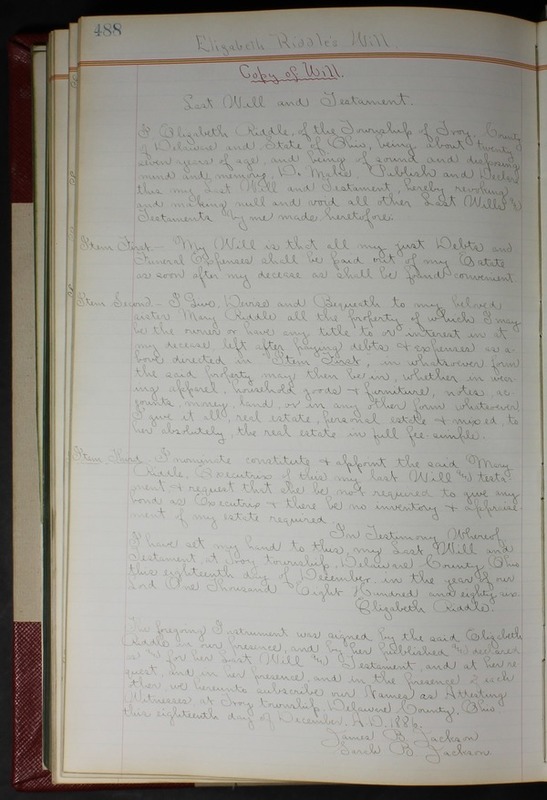 488
Elizabeth Riddle's Will.
Copy of Will.
Last Will and Testament.
I Elizabeth Riddle, of the Township of Troy, County
of Delaware and State of Ohio, being about twenty
seven years of age, and being of sound and disposing
mind and memory, Do Make, Publish and Declare
this my Last Will and Testament, hereby revoking
and making null and void all other Last Wills &
Testaments by me made heretofore.
Item First - My Will is that all my just Debts and
Funeral Expenses shall be paid out of my Estate
as soon after my decease as shall be found convenient.
Item Second - I Give, Devise and Bequeath to my beloved
sister Mary Riddle all the property of which I may
be the owner or have any title to or interest in at
my decease left after paying debts & expenses as a-
bove directed in "Item First", in whatsoever form
the said property may then be in, whether in wear-
ing apparel, household goods & furniture, notes, ac
counts, money, land, or in any other form whatsoever
I give it all, real estate, personal estate & mixed, to
her absolutely, the real estate in full fee-simple.
Item Third - I nominate constitute & appoint the said Mary
Riddle, Executrix of this my last Will & testa-
ment & request that she be not required to give any
bond as Executrix & there be no inventory & appraise-
ment of my estate required.
In Testimony Whereof
I have set my hand to this, my Last Will and
Testament, at Troy township, Delaware County, Ohio
this eighteenth day of December, in the year of our
Lord One Thousand Eight Hundred and eighty six.
Elizabeth Riddle.
The foregoing Instrument was signed by the said Elizabeth
Riddle in our presence, and by her published & declared
as & for her Last Will & Testament, and at her re
quest, and in her presence, and in the presence of each
other we hereunto subscribe our Names as Attesting
Witnesses at Troy township, Delaware County, Ohio.
this eighteenth day of December A.D. 1886.
James B. Jackson
Sarah B. Jackson.